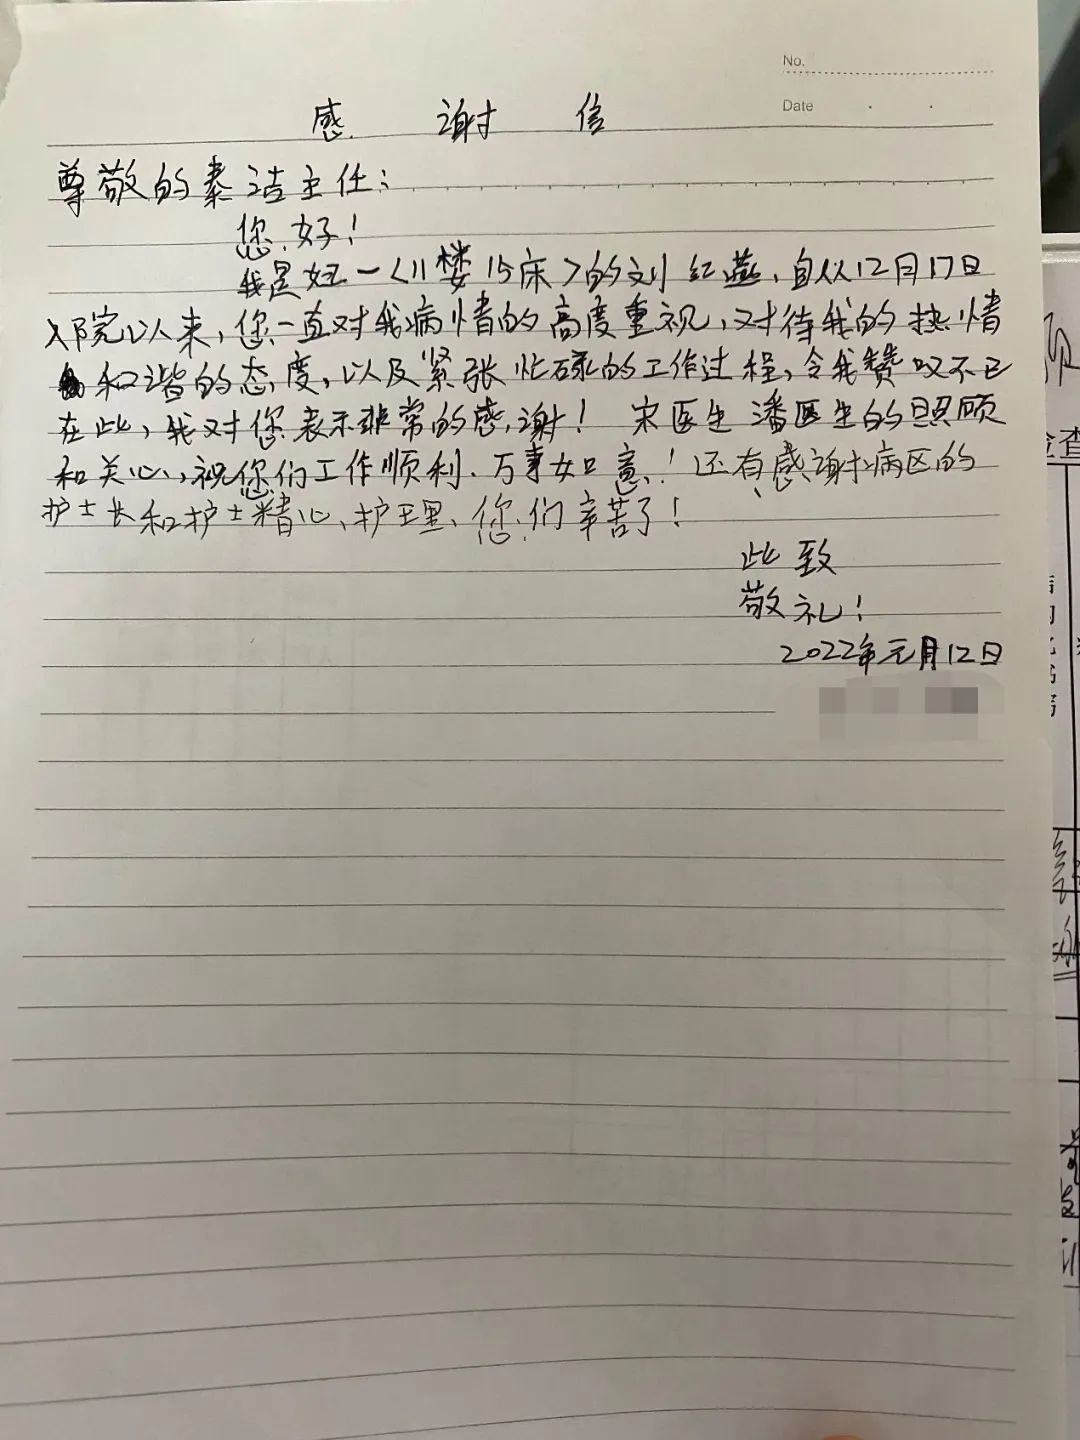 No.
Date
感谢信
尊敬的秦洁主任：
您好！
我是妇一〈11楼15床〉的刘红燕，自从12月17日
入院以来，您一直对我病情的高度重视，对待我的热情
和谐的态度，以及紧张忙碌的工作过程，令我赞叹不已
在此，我对您表示非常的感谢！宋医生潘医生的照顾
和关心，祝您们工作顺利、万事如意！还有感谢病区的
护士长和护士精心、护理、您们辛苦了！
此致
敬礼！
2022年元月12日
查